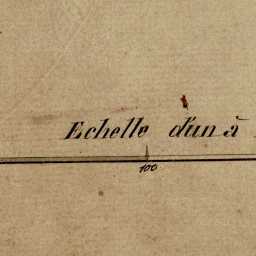 Echelle d'un à
100